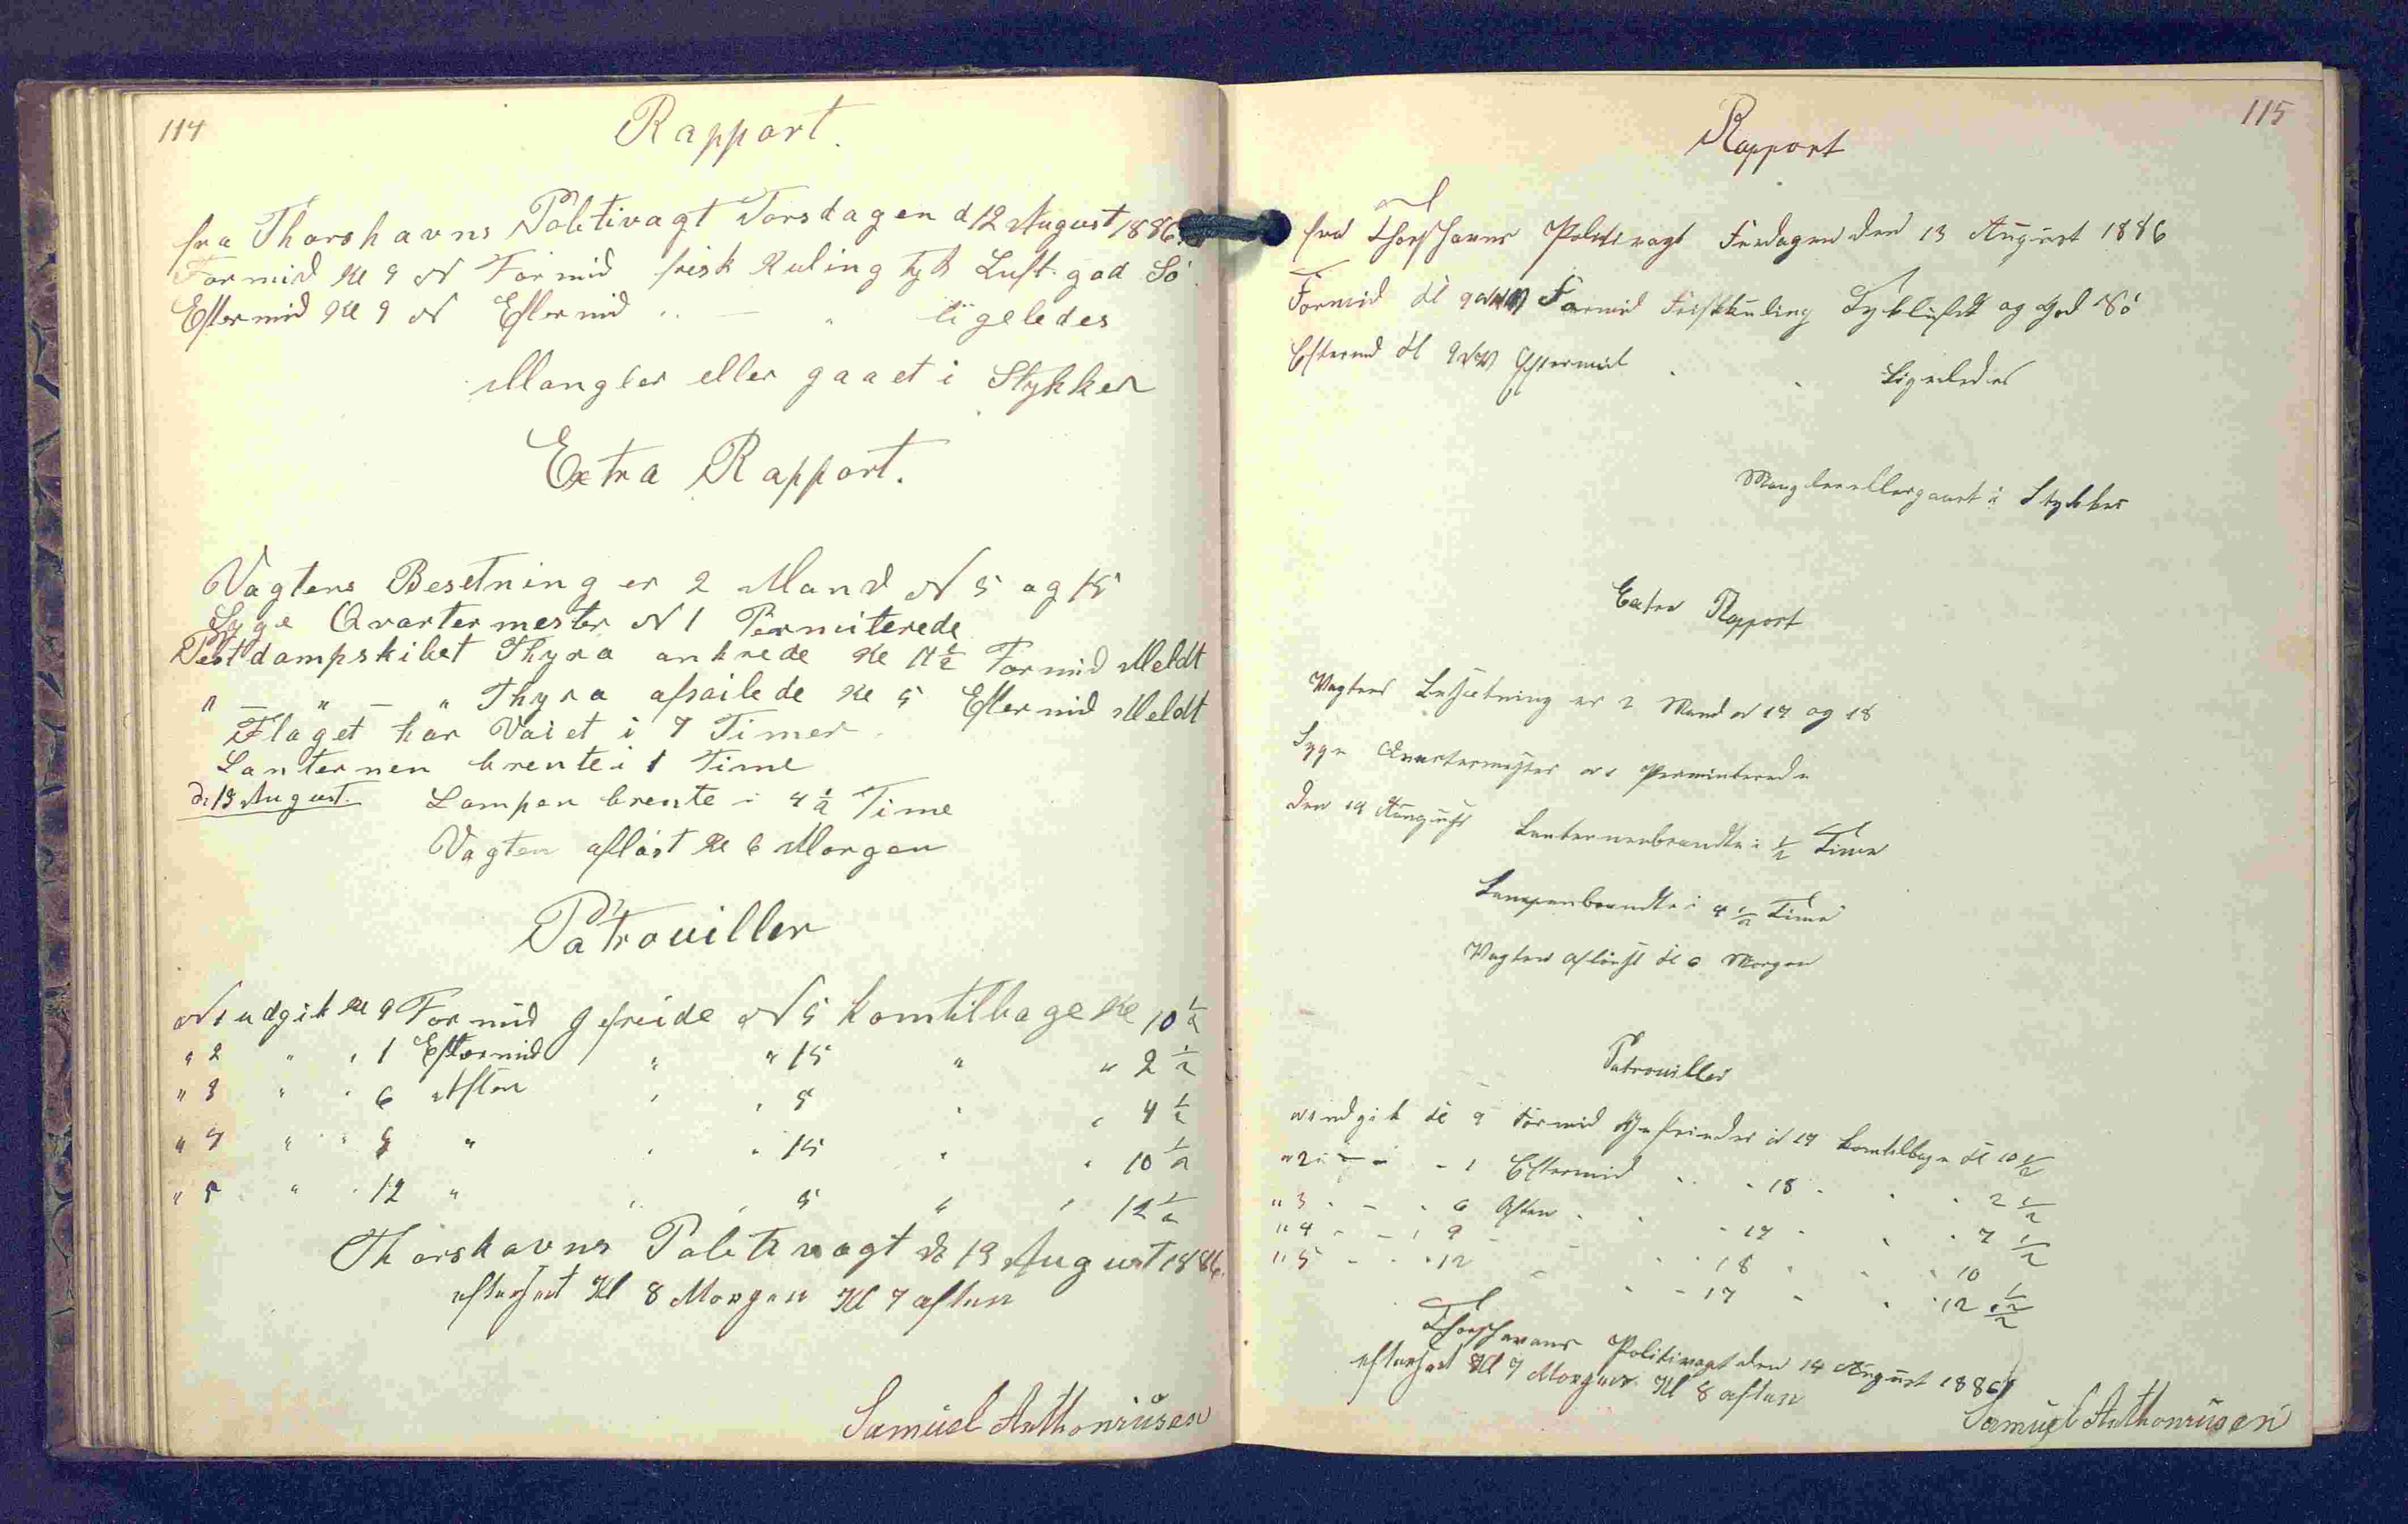 114
Rapport.
fra Thorshavns Politivagt Torsdagen d 12 August 1886.
Formid Kl 9 N Formid frisk Kuling tyk Luft god Sö.
Eftermid Kl 9 N Eftermid " — " ligeledes
Mangler eller gaaet i Stykker
Extra Rapport.
Vagtens Besetning er 2 Mand N 5 og 15
Syge Qvartermester N 1 Permiterede
Postdampskibet Thyra ankrede Kl 11½ Formid Meldt
" — " — " Thyra afsailede Kl 5 Eftermid Meldt
Flaget har Vaiet i 7 Timer
Lanternen brente i 1 Time
d. 13 August. Lampen brente i 4½ Time
Vagten aflöst Kl 6 Morgen
Patrouiller
N 1 udgik Kl 9 Formid gefreide N 5 kom tilbage Kl 10½
" 2 " " 1 Eftermid " " 15 " " 2½
" 3 " " 6 Aften " " 5 " " 4½
" 4 " " 9 " " " 15 " " 10½
" 5 " " 12 " " " 5 " " 12½
Thorshavns Politivagt d 13 August 1886.
efterseet Kl 8 Morgen Kl 7 aften
Samuel Anthoniusen
115
Rapport
fra Thorshavns Politivagt Fredagen den 13 August 1886
Formid Kl 9 NNW Formid Friskkuling Tykluft og God Sö
Eftermd Kl 9 NW Eftermid " " Ligeledes
Mangler eller gaaet i Stykker
Extra Rapport
Vagtens Besætning er 2 Mand N 17 og 18
Syge Qvartermester N 1 Perminterede
Den 14 August Lanternen brændte i ½ Time
Lampen brændte i 4½ Time
Vagten aflöst Kl 6 Morgen
Patrouiller
N 1 udgik Kl 9 Formid Gefreider N 17 kom tilbage Kl 10½
" 2 " — " 1 Eftermid " " 18 " " " 2½
" 3 " — " 6 Aften " " " 17 " " " 7½
" 4 " — " 9 — — " " 18 " " " 10½
" 5 — " " 12 — " " 17 " " " 12½
Thorshavns Politivagt den 14 August 1886
efterseet Kl 7 Morgen Kl 8 aften
Samuel Anthoniusen